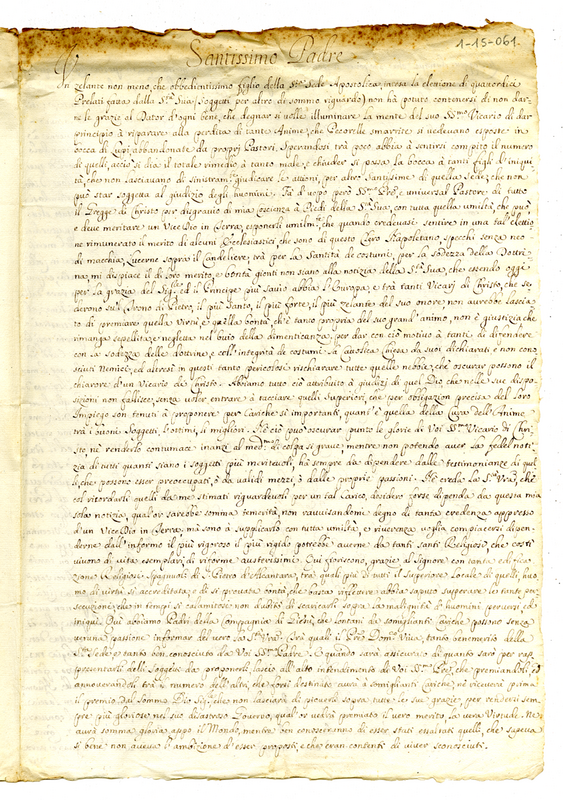 1-15-061
Santissimo Padre
Un zelante non meno, che obbedientissimo figlio della Stā Sede Apostolica, intesa la elezzione di quattordici
Prelati fatta dalla S.tà Sua (soggetti per altro di sommo riguardo) non hà potuto contenersi di non dar-
ne le grazie al Dator d'ogni bene, che degnar si volle illuminare la mente del suo SS.mo Vicario di dar
principio à riparare alla perdita di tante Anime, che Pecorelle smarrite si vedevano esposte in
bocca di Lupi, abbandonate da proprj Pastori. Sperandosi trà poco abbia à sentirsi compito il numero
di quelli, acciò si dia il totale rimedio à tanto male, e chiuder si possa la bocca à tanti figli d'iniqui-
tà, che non lasciavano di sinistram.te giudicare le attioni, per altro Santissime di quella Sede, che non
può star soggetta al giudizio degli huomini. Fà d'uopo però SS.mo Prē, e universal Pastore di tutto
il Gregge di Christo per disgravio di mia coscienza à Piedi della S.tà Sua, con tutta quella umiltà, che può,
e deve meritare un ViceDio in Terra, esponerli umilm.te, che quando credevasi sentire in una tal'elettio-
ne rimunerato il merito di alcuni Ecclesiastici, che sono di questo Clero Napolitano, specchi senza neo
di macchia, Lucerne sopra il Candeliere, trà per la Santità de costumi, per la sodezza della Dottri-
na; mi dispiace il di loro merito, e bontà gionti non siano alla notizia della S.tà Sua, che essendo oggi
per la grazia del Sig.re Id.o il Principe più savio abbia l'Europa, e trà tanti Vicarj di Christo, che se-
derono sul Trono di Pietro, il più Santo, il più forte, il più zelante del suo onore, non avrebbe lascia-
to di premiare quella Virtù, e quella bontà, ch'è tanto propria del suo grand'animo, non è giustizia, che
rimanga sepellita, e negletta nel buio della dimenticanza, per dar con ciò motivo à tanti di difendere
con la sodezza della dottrina, e coll'integrità de costumi la Cattolica Chiesa da suoi dichiarati, e non cono-
sciuti Nemici, ed altresì in questi tanto pericolosi rischiarare tutte quelle nebbie, che oscurar possono il
chiarore d'un Vicario di Christo. Abbiamo tutto ciò attribuito à giudizj di quel Dio, che nelle sue dispo-
sizioni non fallisce, senza voler entrare à tacciare quelli Superiori, che per obligazion precisa del loro
Impiego son tenuti à proponere per Cariche sì importanti, quant'è quella della Cura dell'Anime,
trà i buoni Soggetti, l'ottimi, li migliori. Nè ciò può oscurar punto le glorie di Voi SS.mo Vicario di Chri-
sto, nè renderlo contumace inanzi al med.mo di colpa sì grave, mentre non potendo aver la fedel noti-
zia di tutti quanti siano i soggetti più meritevoli, hà sempre da dipendere dalle testimonianze di quel-
li, che possono esser preoccupati, ò da validi mezzi, ò dalle proprie passioni. Nè creda la S.tà Vrā, che
col ricordarli quelli da me stimati riguardevoli per un tal Carico, desidero forse dipenda da questa mia
sola notizia, qual or sarebbe somma temerità, non ravvisandomi degno di tanta credenza appresso
d'un ViceDio in Terra, ma sono à supplicarlo con tutta umiltà, e riverenza voglia compiacersi dipen-
derne dall'informo il più rigoroso, il più rigido potrebbe averne da tanti santi Religiosi, che costì
vivono di vita esemplari, di riforme austerissimi. Qui fioriscono, grazie al Signore con tanta edifica-
zione Religiosi Spagnuoli di S. Pietro d'Alcantara, trà quali più di tutti il Superiore Locale di quelli, huo-
mo di virtù sì accreditata, e di sì provata bontà, che basta riflettere abbia saputo superare le tante per-
secuzioni, che in tempi sì calamitosi non dubitò di scaricarli sopra la malignità d'huomini perversi, ed
iniqui. Quì abbiamo Padri della Compagnia di Giesù, che lontani da somiglianti Cariche possono senza
veruna passione informar del vero la S.tà Vrā. Frà quali il Prē Dom.co Viva, tanto benemerito della
S.tà Sede, e tanto ben conosciuto da Voi SS.mo Padre. E quando sarà assicurato di quanto sarò per rap-
presentarli delli Soggetti da proponerli, lascio all'alto intendimento di Voi SS.mo Prē, che premiandoli, ed
annoverandoli trà 'l numero dell'altri, che forsi destinato avrà à somiglianti Cariche, nè riceverà prima
il premio dal sommo Dio Sig.re, che non lasciarà di piovervi sopra tutte le sue grazie, per rendervi sem-
pre più glorioso nel suo disastroso Governo, qual or vedrà premiato il vero merito, la vera Virtude. Ne
avrà somma gloria appo il Mondo, mentre ben conosceranno di esser stati esaltati quelli, che sapeva
sì bene non aveva l'ambizione d'esser proposti, e che eran contenti di viver sconosciuti.